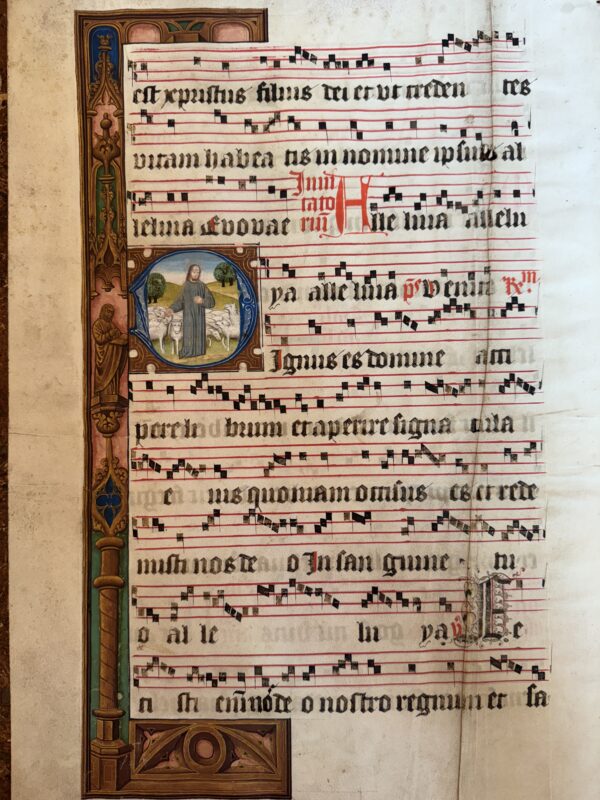 est xpristus filius dei et vt creden tes
vitam habea tis in nomine ipsius al
leluia Evovae Inui tato riū Alle luia allelu
ya alle luia ps Venite Rm
Dignus es domine acci
pere li brum et aperire signa cula
e ius quoniam occisus es et rede
misti nos de o In san guine tu
o al le lu ya v Fe
ci sti o nostro regnum et sa